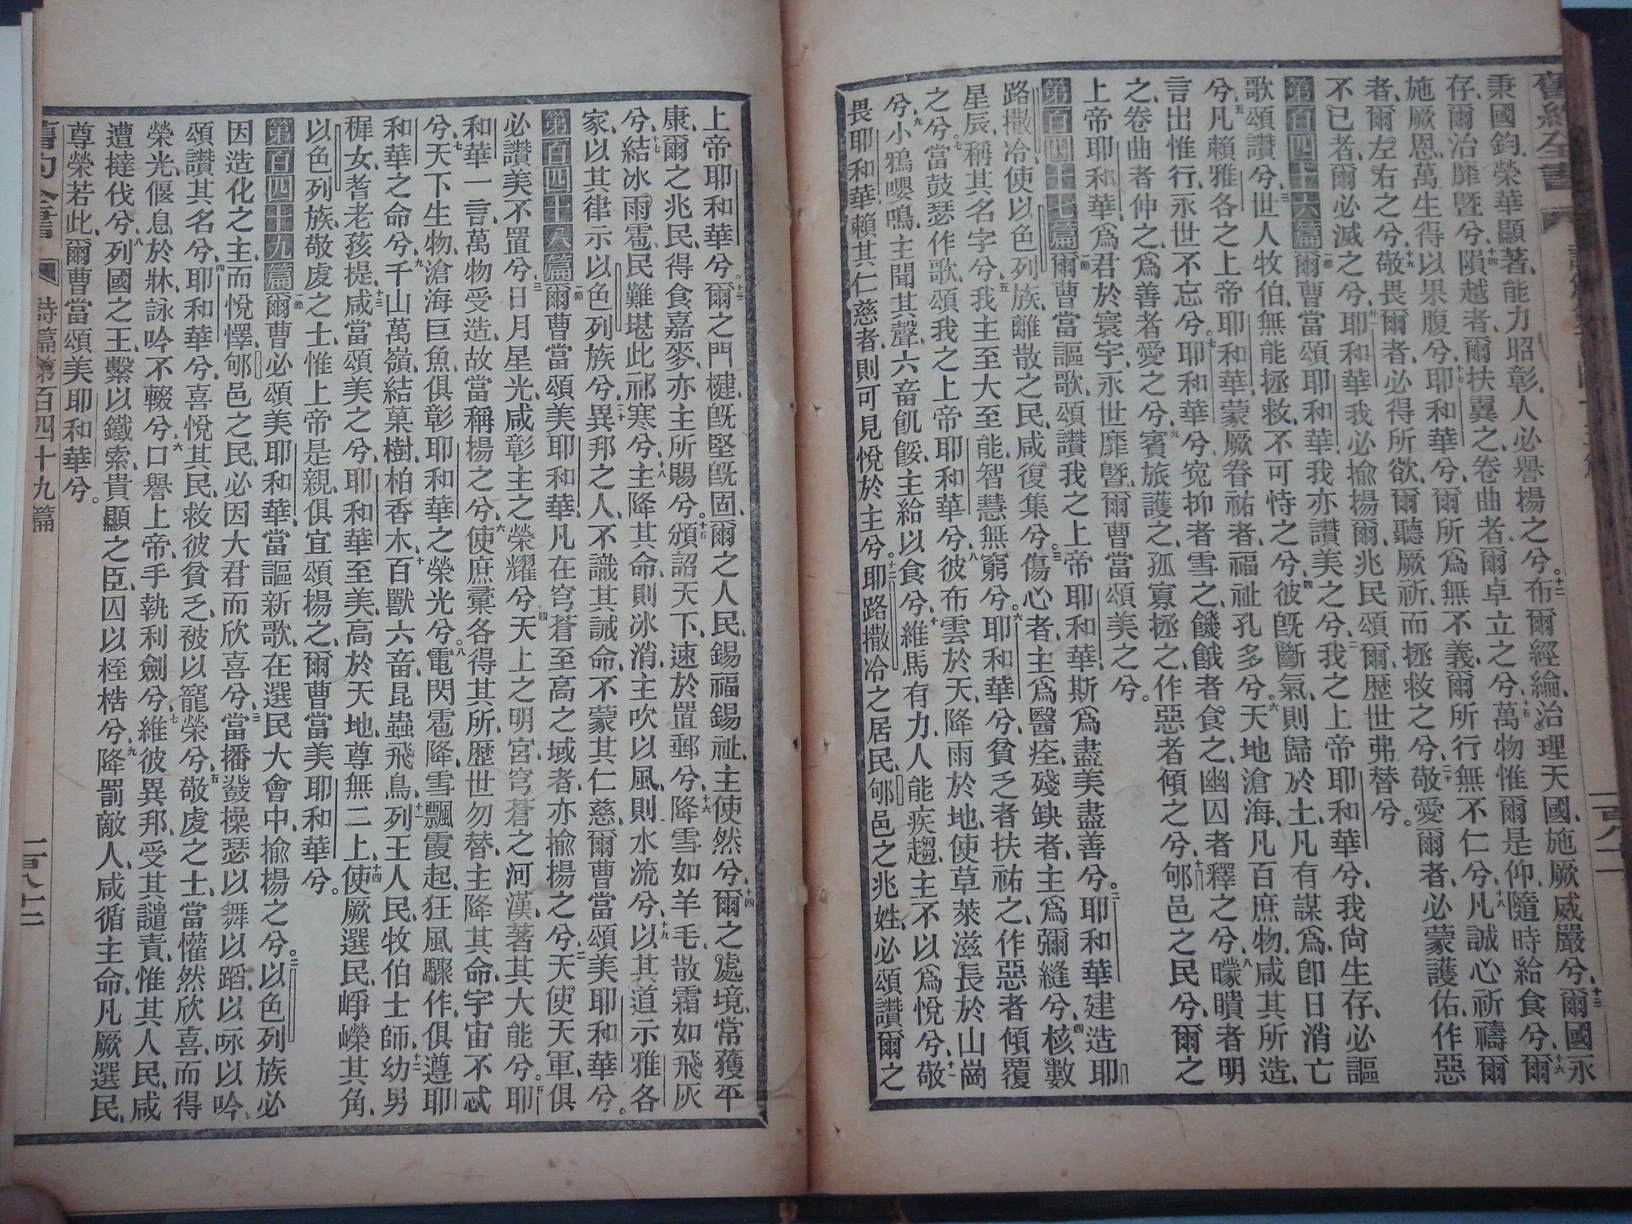 舊約全書
秉國鈞、榮華顯著、能力昭彰、人必譽揚之兮。十二布爾經綸、治理天國、施厥威嚴兮、十三爾國永
存、爾治靡暨兮、十四隕越者、爾扶翼之、卷曲者、爾卓立之兮、十五萬物惟爾是仰、隨時給食兮、十六爾
施厥恩、萬生得以果腹兮、十七耶和華兮、爾所爲無不義、爾所行無不仁兮、十八凡誠心祈禱爾
者、爾左右之兮、十九敬畏爾者、必得所欲、爾聽厥祈、而拯救之兮、二十敬愛爾者、必蒙護佑、作惡
不已者、爾必滅之兮、耶和華、我必揄揚爾、兆民頌爾、歷世弗替兮。
第百四十六篇 一節爾曹當頌耶和華、我亦讚美之兮、二我之上帝耶和華兮、我尙生存、必謳
歌頌讚兮、三世人牧伯、無能拯救、不可恃之兮、四彼旣斷氣、則歸於土、凡有謀爲、卽日消亡
兮、五凡賴雅各之上帝耶和華、蒙厥眷祐者、福祉孔多兮。六天地滄海、凡百庶物、咸其所造、
言出惟行、永世不忘兮。七耶和華兮、寃抑者雪之、饑餓者食之、幽囚者釋之兮、八矇瞶者明
之、卷曲者伸之、爲善者愛之兮、九賓旅護之、孤寡拯之、作惡者傾之兮、十郇邑之民兮、爾之
上帝耶和華爲君於寰宇、永世靡暨、爾曹當頌美之兮。
第百四十七篇 一節爾曹當謳歌、頌讚我之上帝耶和華、斯爲盡美盡善兮。二耶和華建造耶
路撒冷、使以色列族、離散之民、咸復集兮。三傷心者、主爲醫痊、殘缺者、主爲彌縫兮、四核數
星辰、稱其名字兮、五我主至大至能、智慧無窮兮。六耶和華兮、貧乏者扶祐之、作惡者傾覆
之兮。七當鼓瑟作歌、頌我之上帝耶和華兮、八彼布雲於天、降雨於地、使草萊滋長於山崗
兮、九小鴉嚶鳴、主聞其聲、六畜飢餒、主給以食兮、十維馬有力、人能疾趨、主不以爲悅兮、十一敬
畏耶和華、賴其仁慈者、則可見悅於主兮。十二耶路撒冷之居民、郇邑之兆姓、必頌讚爾之
上帝耶和華兮。十三爾之門楗、旣堅旣固、爾之人民、錫福錫祉、主使然兮、十四爾之處境、常獲平
康、爾之兆民、得食嘉麥、亦主所賜兮。十五頒詔天下、速於置郵兮、十六降雪如羊毛、散霜如飛灰
兮、十七結冰雨雹、民難堪此祁寒兮、十八主降其命則冰消、主吹以風、則水流兮、十九以其道示雅各
家、以其律示以色列族兮、二十異邦之人、不識其誡命、不蒙其仁慈、爾曹當頌美耶和華兮。
第百四十八篇 一節爾曹當頌美耶和華、凡在穹蒼至高之域者、亦揄揚之兮、二天使天軍、俱
必讚美不置兮、三日月星光、咸彰主之榮耀兮、四天上之明宮、穹蒼之河漢、著其大能兮。五耶
和華一言、萬物受造、故當稱揚之兮、六使庶彙各得其所、歷世勿替、主降其命、宇宙不忒
兮、七天下生物、滄海巨魚、俱彰耶和華之榮光兮。八電閃雹降、雪飄霞起、狂風驟作、俱遵耶
和華之命兮、九千山萬嶺、結菓樹、柏香木、十百獸六畜、昆蟲飛鳥、十一列王人民、牧伯士師、十二幼男
穉女、耆老孩提、十三咸當頌美之兮、耶和華至美、高於天地、尊無二上、十四使厥選民、崢嶸其角、
以色列族、敬虔之士、惟上帝是親、俱宜頌揚之、爾曹當美耶和華兮。
第百四十九篇 一節爾曹必頌美耶和華、當謳新歌、在選民大會中、揄揚之兮。二以色列族必
因造化之主而悅懌、郇邑之民、必因大君而欣喜兮、三當播鼗操瑟、以舞以蹈、以咏以吟、
頌讚其名兮、四耶和華兮、喜悅其民、救彼貧乏、被以寵榮兮、五敬虔之士、當懽然欣喜、而得
榮光、偃息於牀、詠吟不輟兮、六口譽上帝、手執利劍兮、七維彼異邦、受其譴責、惟其人民、咸
遭撻伐兮、八列國之王、繫以鐵索、貴顯之臣、囚以桎梏兮、九降罰敵人、咸循主命、凡厥選民、
尊榮若此、爾曹當頌美耶和華兮。
舊約全書 詩篇第百四十九篇 一百八十二